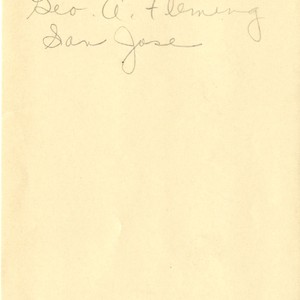 Geo. A. Fleming
San Jose